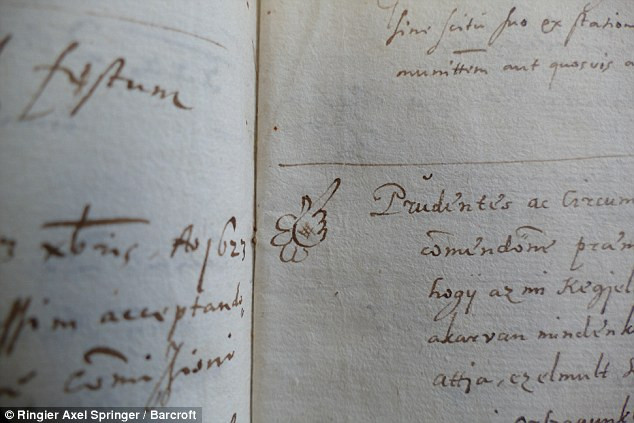 festum
xbris, Ao 1623
ssim acceptando,
com̄issioni
sine scitu suo ex station
munittem aut quosvis a
Prŭdentes ac Circum
com̄endōne præm
hogÿ az mi Kegjel
akarvan mindenk
attja, ez elmult
© Ringier Axel Springer / Barcroft